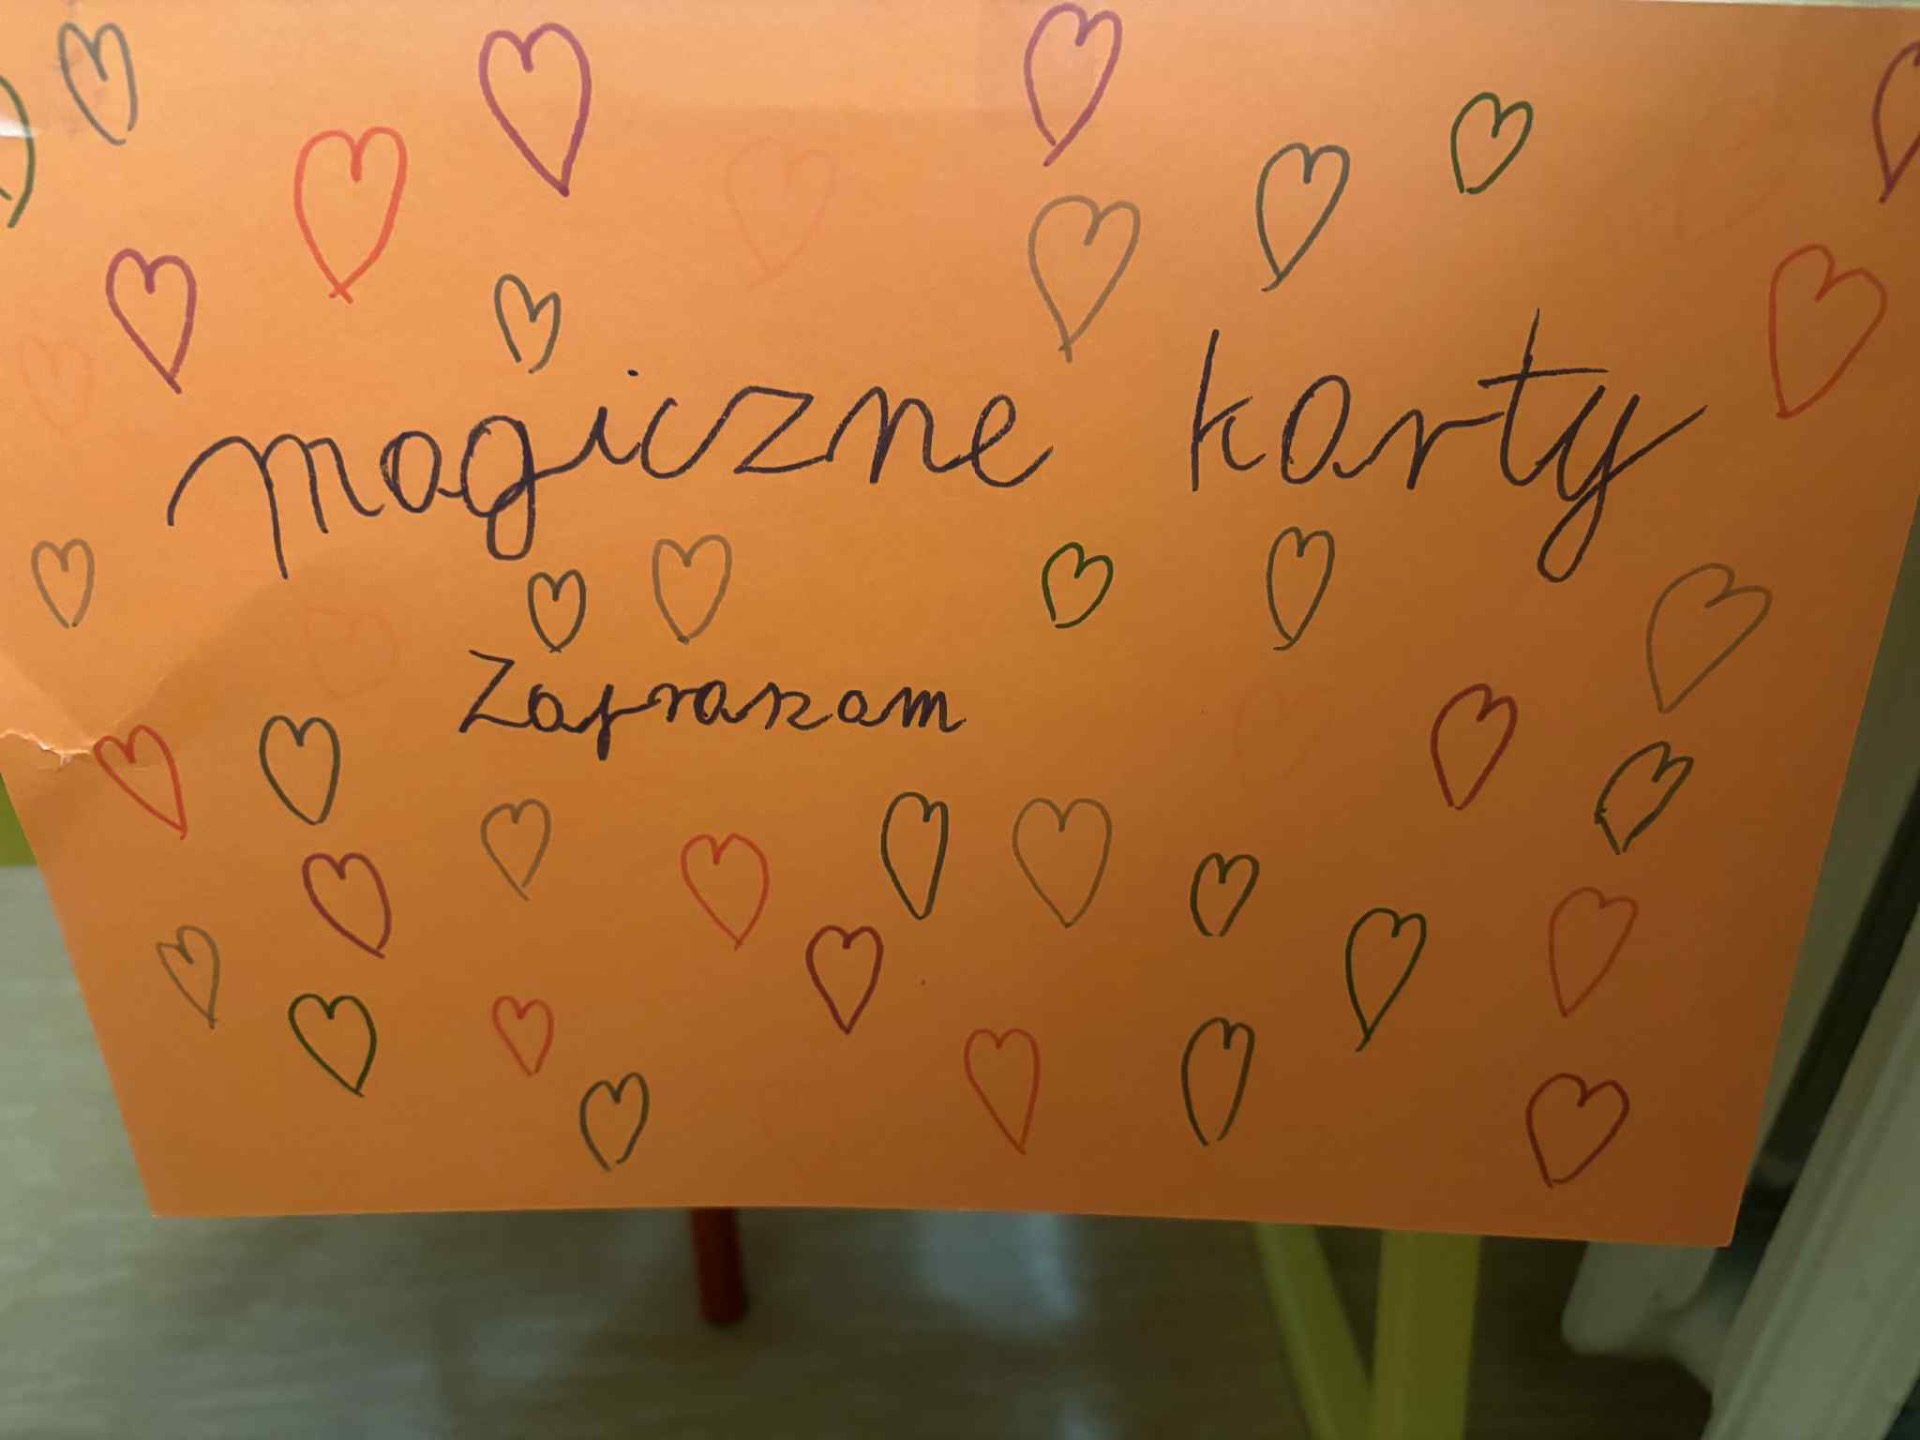 magiczne karty
Zapraszam